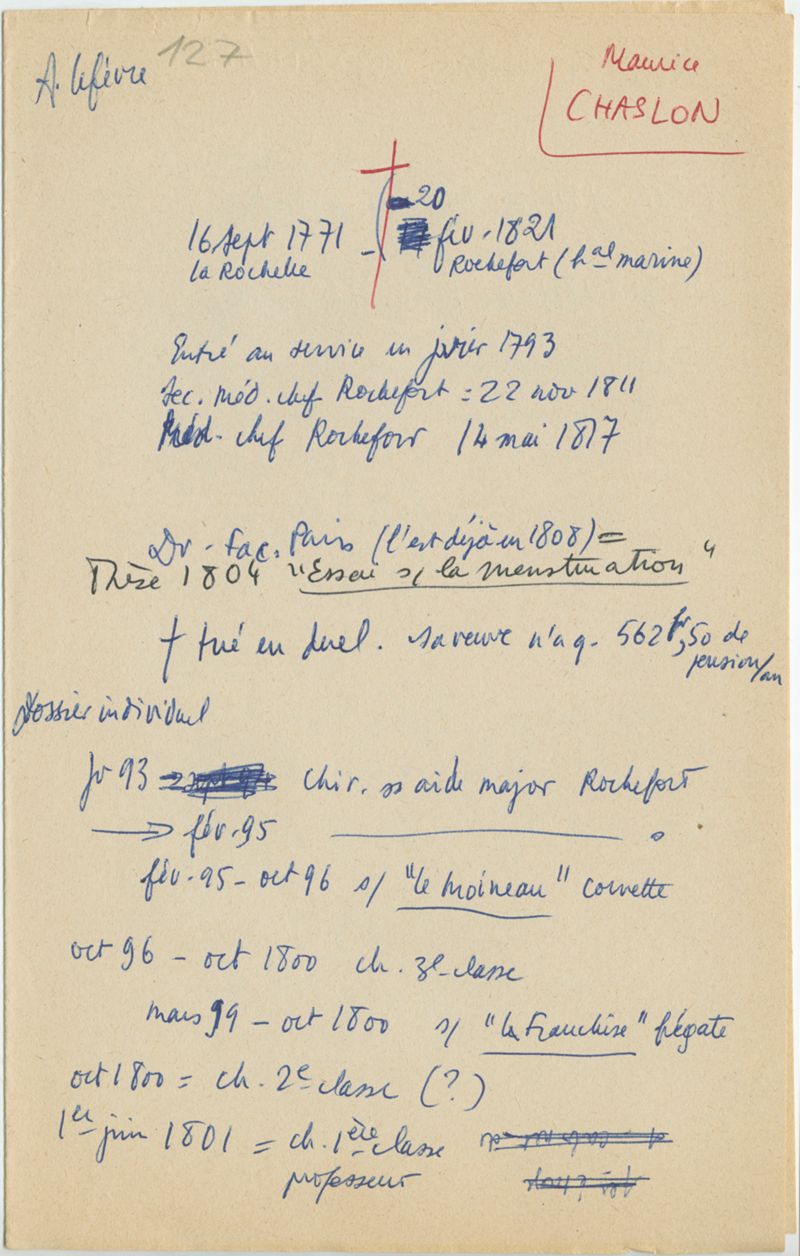 A. lefèvre 127
Maurice
CHASLON
20
16 sept 1771 - fév. 1821
la Rochelle Rochefort (hal marine)
Entré au service en jvier 1793
Sec. méd. chef Rochefort = 22 nov 1811
Méd. chef Rochefort 14 mai 1817
Dr. Fac. Paris (l'est déjà en 1808) =
Thèse 1804 "Essai s/ la menstruation"
† tué en duel. sa veuve n'a q. 562 fr,50 de
pension/an
Dossier individuel
Jv 93 chir. ss aide major Rochefort
→ fév. 95 ———— "
fév. 95 - oct 96 s/ "le Moineau" corvette
oct 96 - oct 1800 ch. 3e classe
mars 99 - oct 1800 s/ "la Franchise" frégate
oct 1800 = ch. 2e classe (?)
1er juin 1801 = ch. 1ère classe
professeur